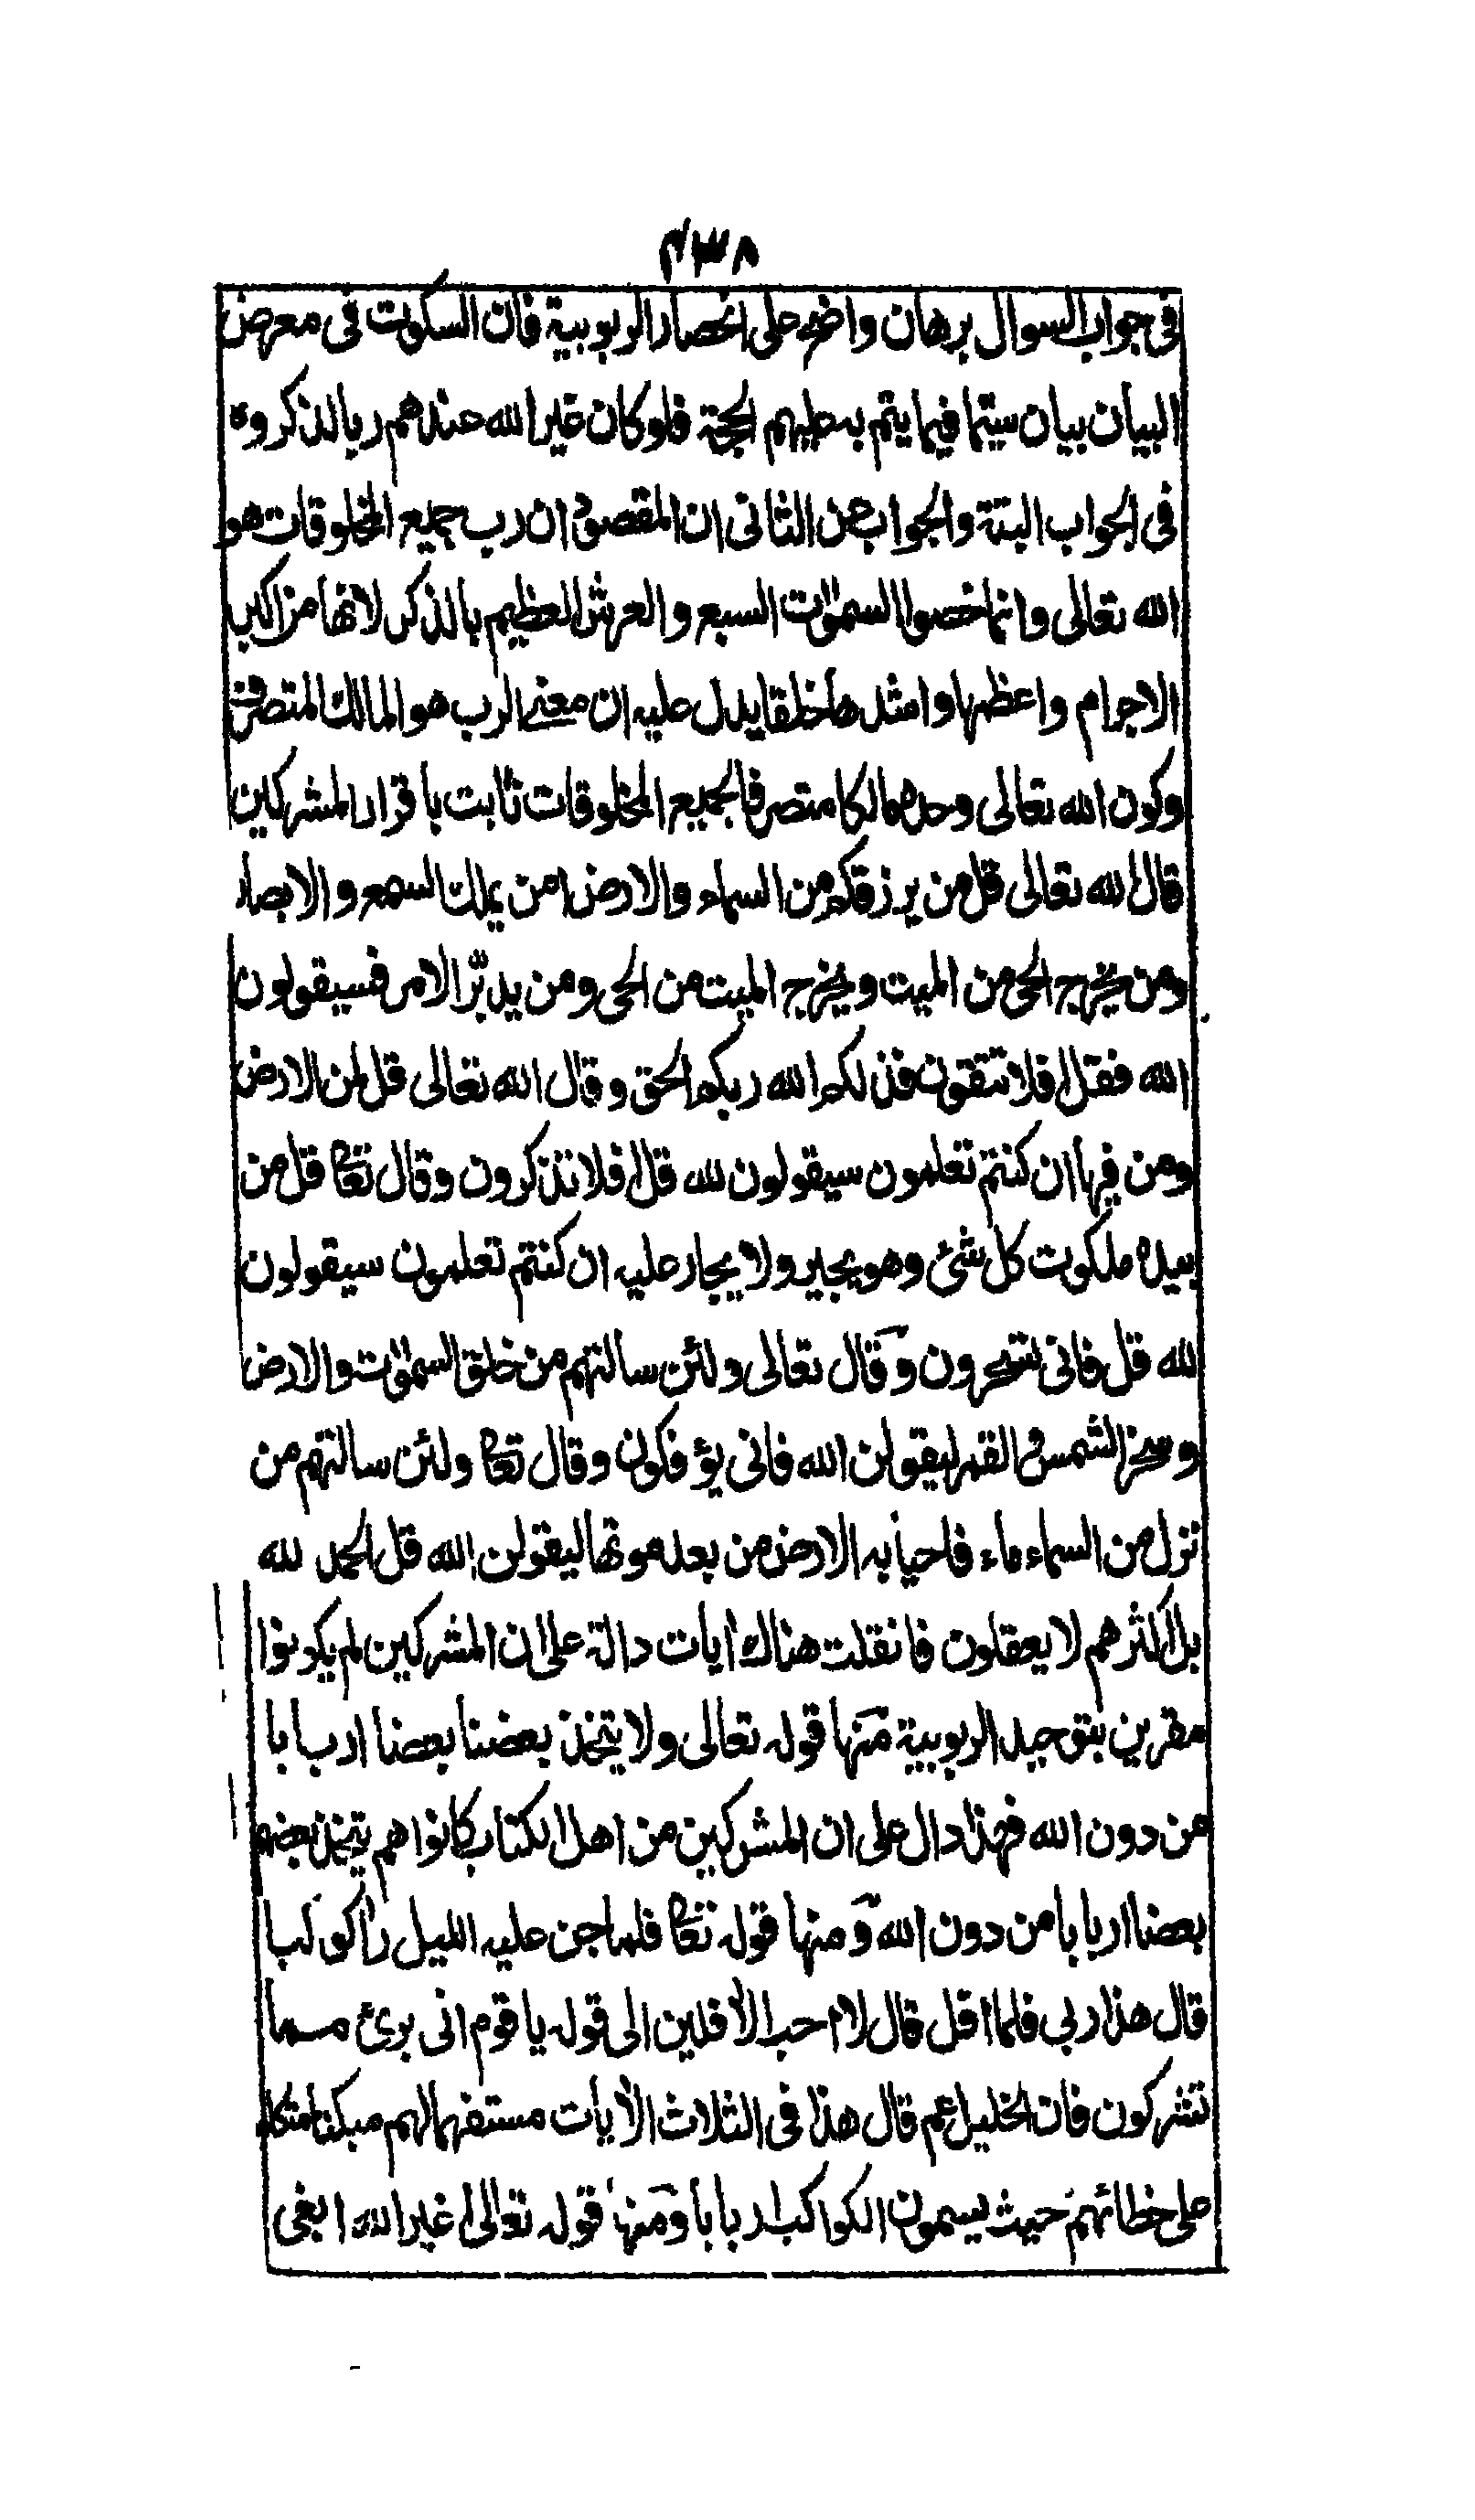 ٤٣٨
فى جواب السوال برهان واضح على انحصار الربوبية فان السكوت فى معرض
البيان بيان سيّما فيما يتم به عليهم الحجة فلو كان غير الله عندهم ربا لذكروه
فى الجواب البتة والجواب عن الثانى ان المقصود ان رب جميع المخلوقات هو
الله تعالى وانما خصوا السموٰت السبع والعرش العظيم بالذكر لانها من اكبر
الاجرام واعظمها وامثلها خلقا يدل عليه ان معنى الرب هو المالك المتصرف
وكون الله تعالى وحده مالكا متصرفا لجميع المخلوقات ثابت باقرار المشركين
قال الله تعالى قل من يرزقكم من السماء والارض امن يملك السمع والابصار
ومن يخرج الحى من الميت ويخرج الميت من الحى ومن يدبّر الامر فسيقولون
الله فقل افلا تتقون فذلكم الله ربكم الحق وقال الله تعالى قل لمن الارض
ومن فيها ان كنتم تعلمون سيقولون لله قل افلا تذكرون وقال تعا قل من
بيده ملكوت كل شئ وهو يجير ولا يجار عليه ان كنتم تعلمون سيقولون
لله قل فانى تسحرون وقال تعالى ولئن سالتهم من خلق السموٰت والارض
وسخر الشمس والقمر ليقولن الله فانى يؤفكون وقال تعا ولئن سالتهم من
نزل من السماء ماء فاحيا به الارض من بعد موتها ليقولن الله قل الحمد لله
بل اكثرهم لا يعقلون فان قلت هناك ايات دالة على ان المشركين لم يكونوا
مقرين بتوحيد الربوبية منها قوله تعالى ولا يتخذ بعضنا بعضا اربابا
من دون الله فهذا دال على ان المشركين من اهل الكتاب كانوا هم يتخذ بعضهم
بعضا اربابا من دون الله ومنها قوله تعا فلما جن عليه الليل رأ كوكبا
قال هذا ربى فلما افل قال لا احب الأفلين الى قوله يا قوم انى برئ مما
تشركون فان الخليل عم قال هذا فى الثلاث الأيات مستفهما لهم مبكتا متكلما
على خطائهم حيث يسمون الكواكب اربابا ومنها قوله تعالى اغير الله ابغى